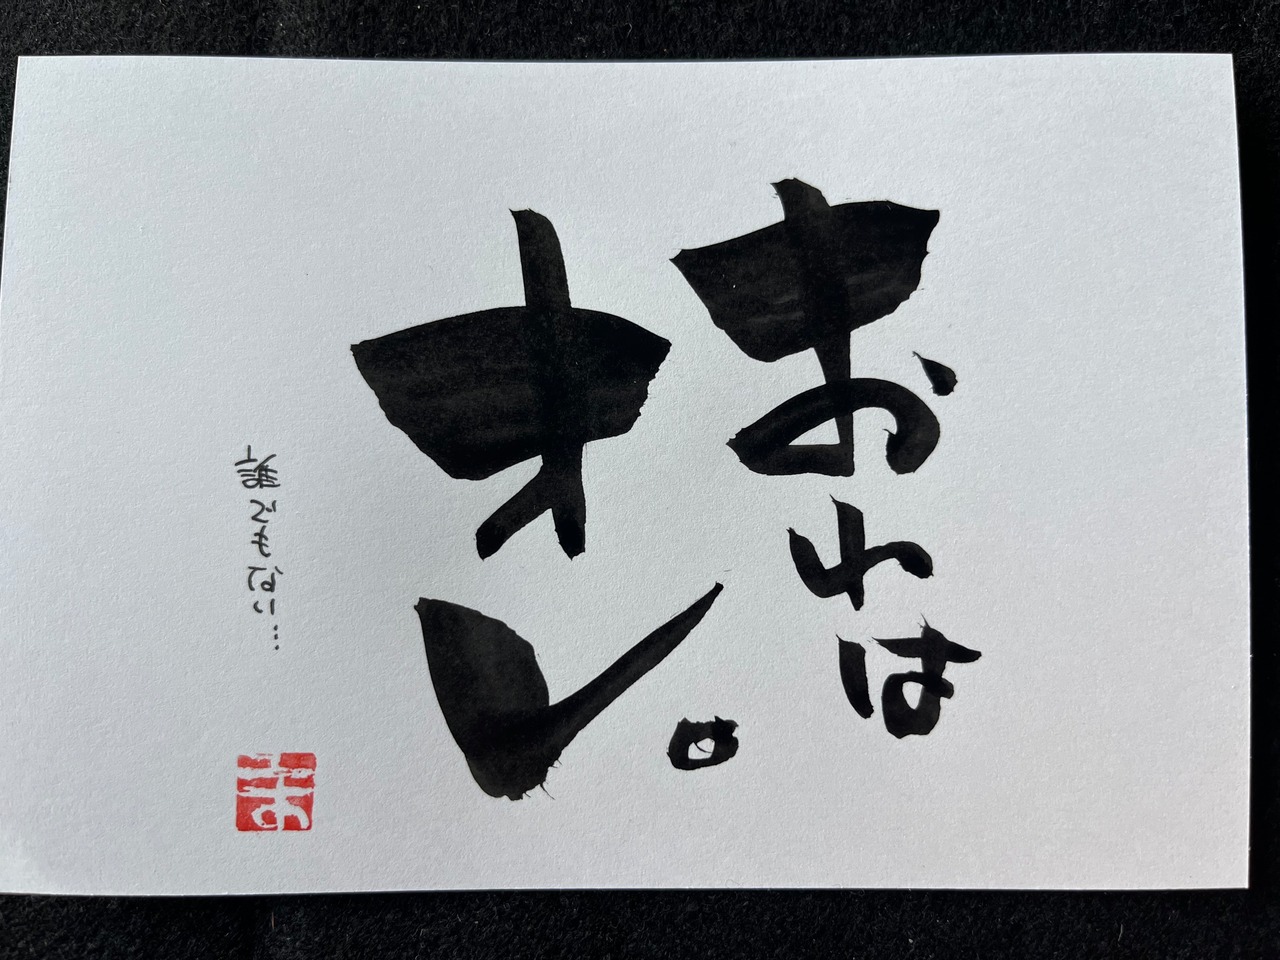 おれは
オレ。
誰でもない…